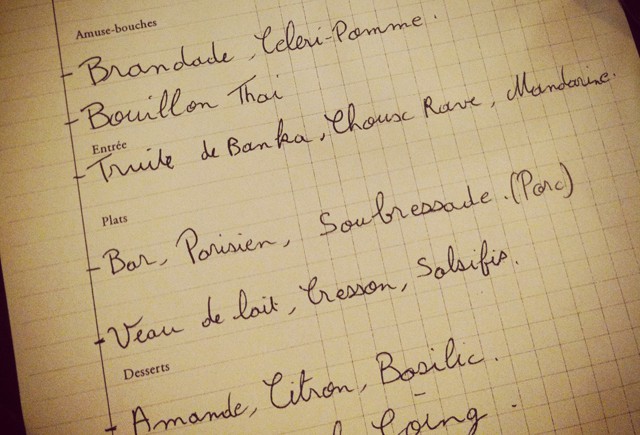 Amuse-bouches
- Brandade, Céleri-Pomme.
- Bouillon Thai
Entrée
- Truite de Banka, Choux Rave, Mandarine.
Plats
- Bar, Parisien, Soubressade. (Porc)
- Veau de lait, Cresson, Salsifis.
Desserts
- Amande, Citron, Basilic.
Coing.